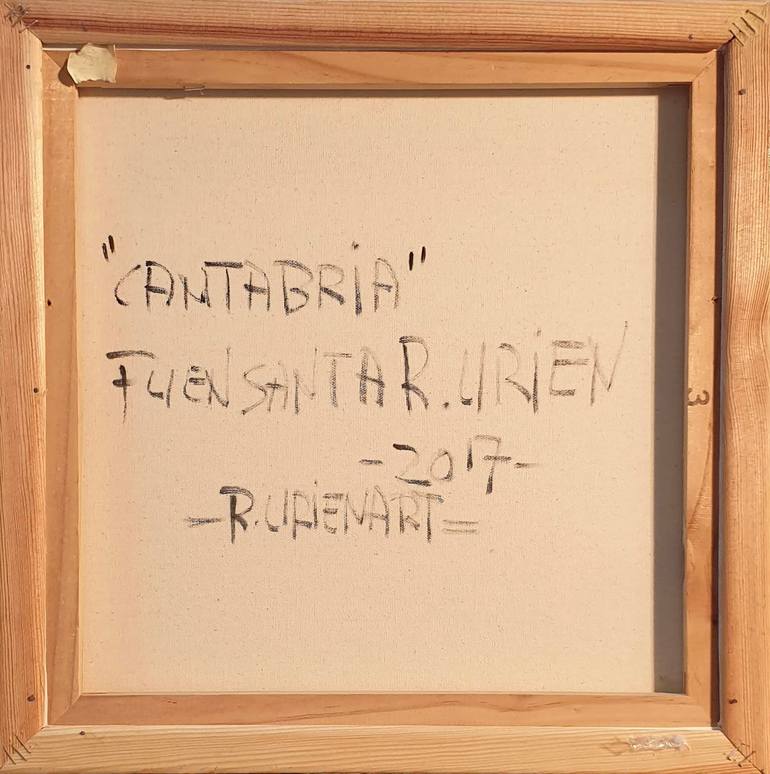 "CANTABRiA"
FUENSANTA R. URiEN
-2017-
-R.URiENART=
3